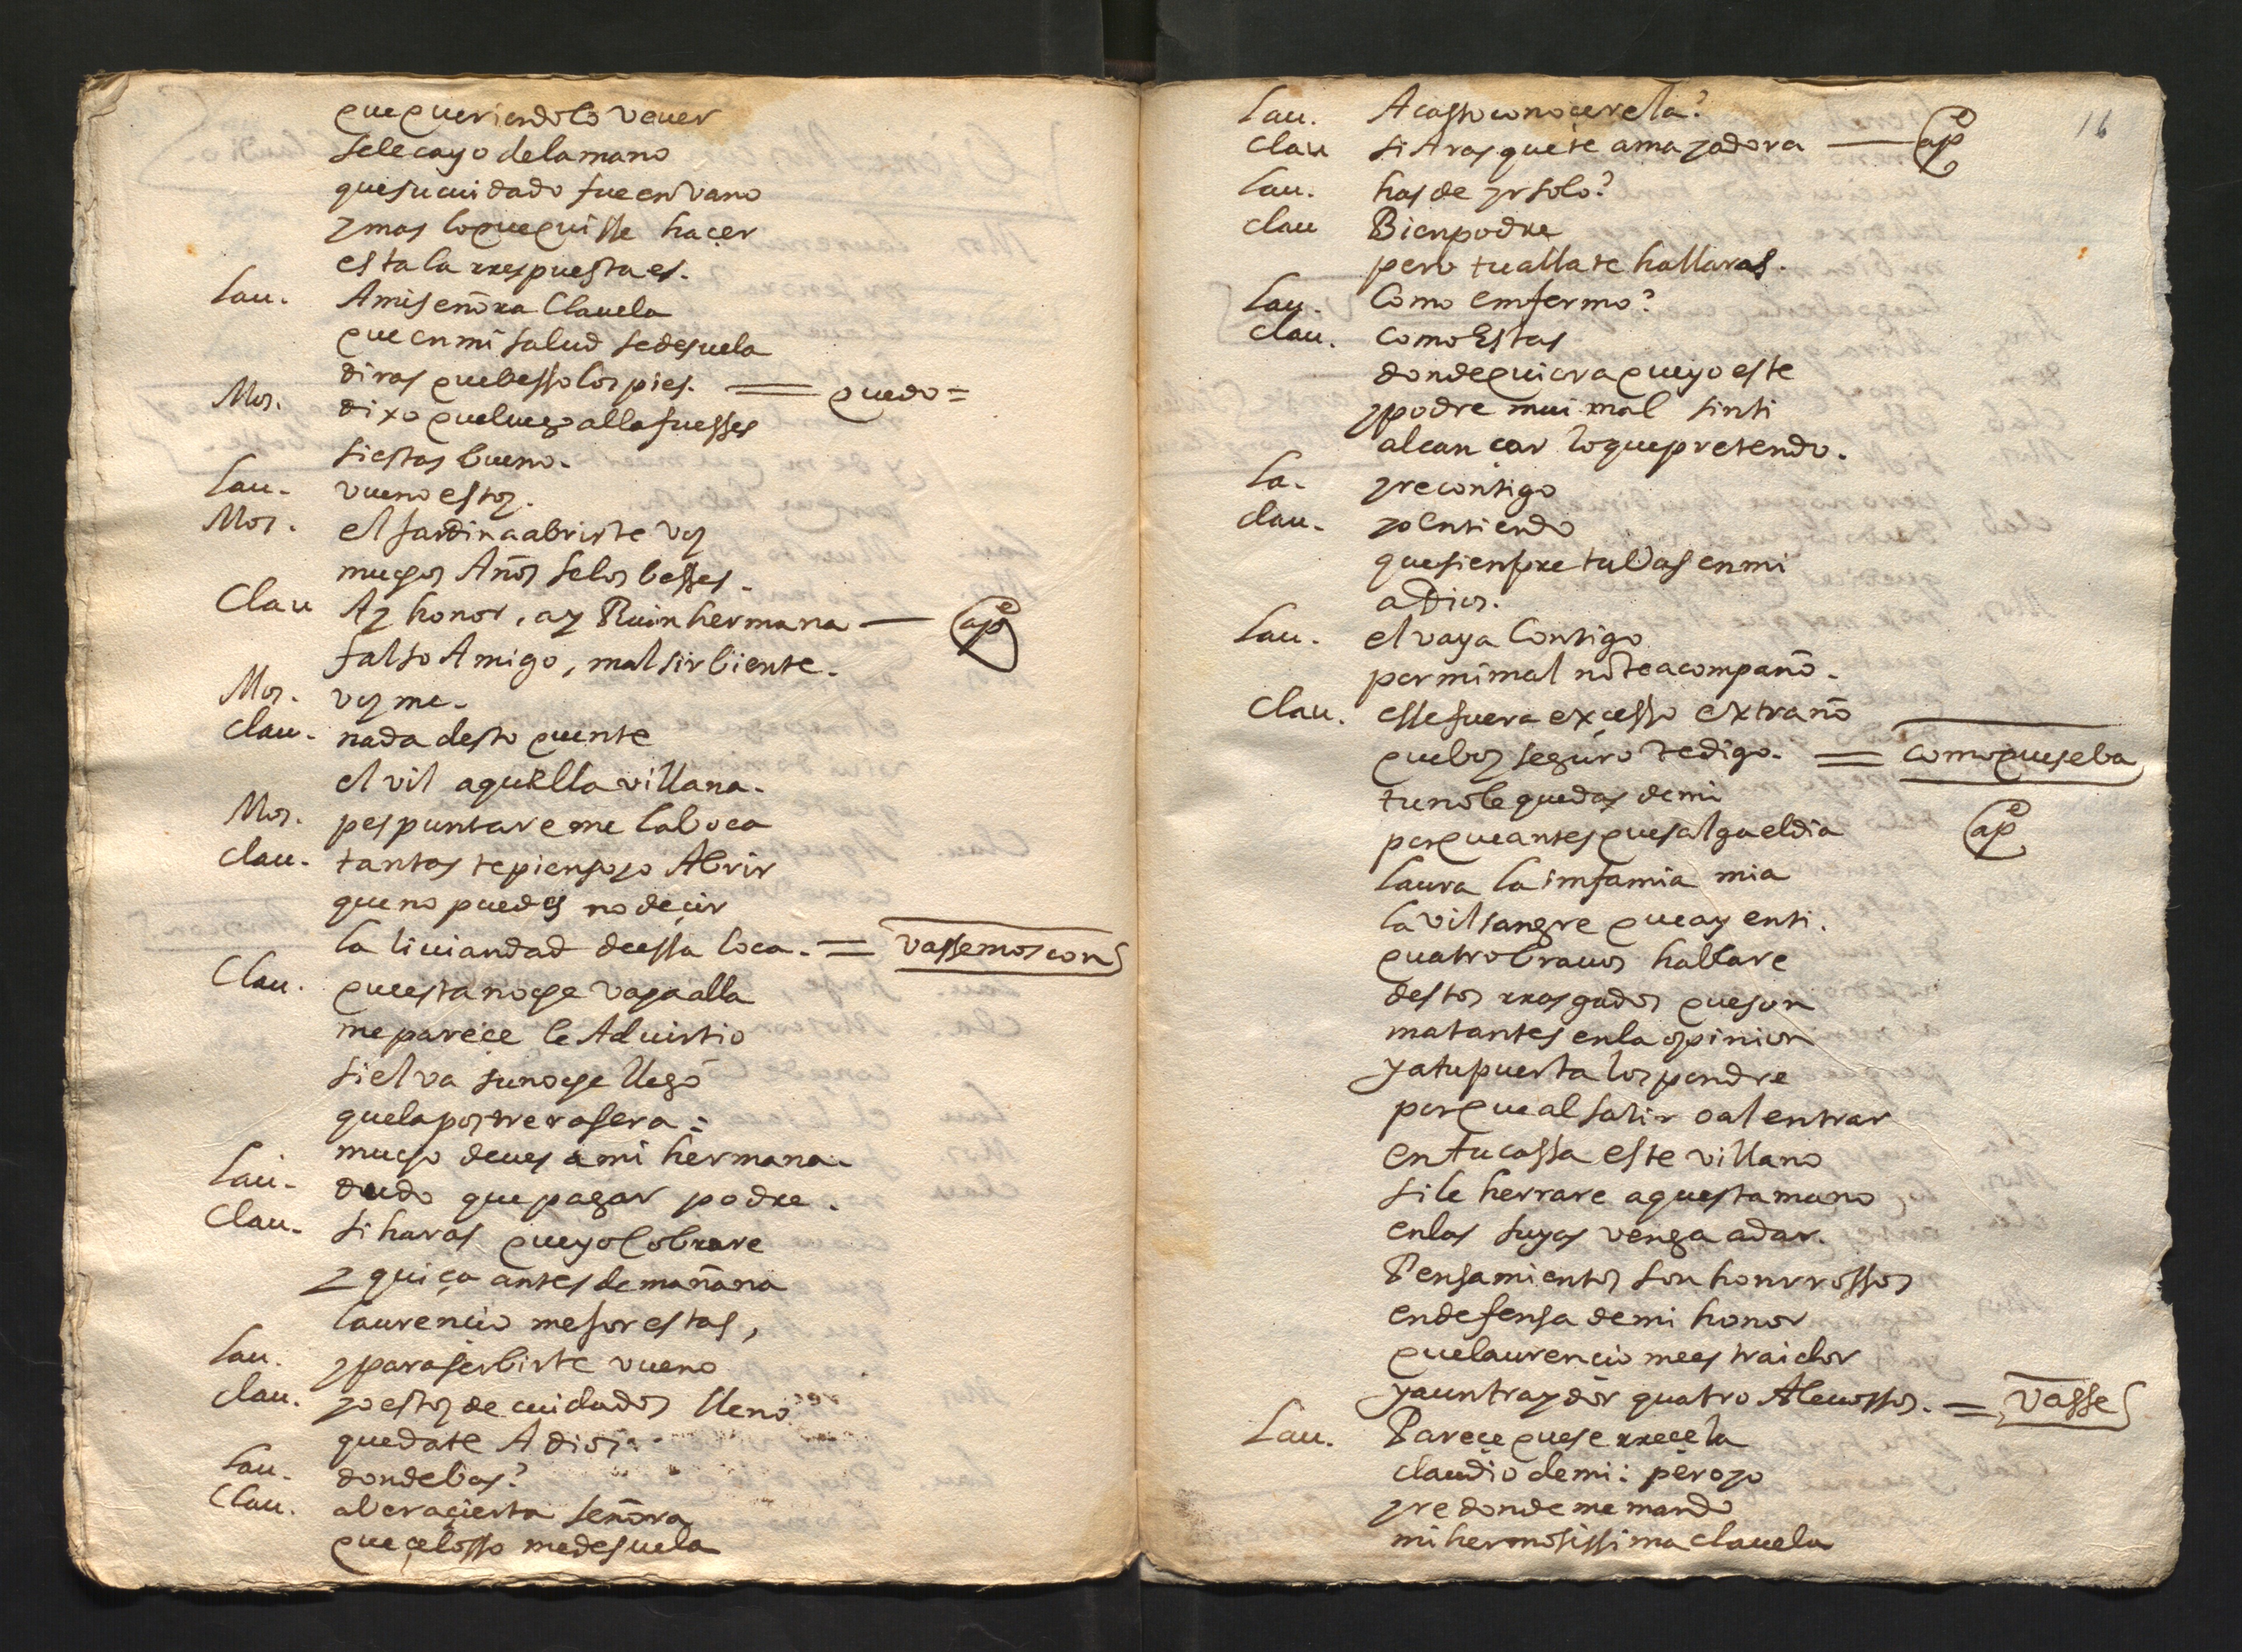 que queriendolo vever
sele cayo dela mano
que su cuidado fue en vano
y mas lo que quisse haçer
esta la rrespuesta es.
Lau. A mi señora Clauela
que en mi salud se desuela
diras que besso los pies. = quedo =
Mos. dixo que luego alla fuesses
si estas bueno.
Lau. vueno estoy.
Mos. el jardin a abrirte voy
muchos Años selos besses.
Clau Ay honor, ay Ruin hermana — ap^e
falso Amigo, mal sirbiente.
Mos. voyme.
Clau. nada desto quente
el vil aquella villana.
Mos. pespuntareme la boca
Clau. tantas te pienso yo Abrir
que no puedes no deçir
la liuiandad de essa loca. = vasse moscon
Clau. que esta noche vaya alla
me pareçe le Aduirtio
si el va su noche llegó
que la postrera sera:
mucho deues a mi hermana.
Lau. dudo que pagar podre.
Clau. si haras que yo Cobrare
y quiça antes de mañana
laurencio mejor estas,
Lau. y para serbirte vueno
Clau. yo estoy de cuidados lleno
quedate A dios.
Lau. donde bas?
Clau. a ber a çierta señora
que çelosso me desuela
16
Lau. A casso conocerela?
Clau si Aras que te ama y adora — ap^e
Lau. has de yr solo?
Clau Bien podre
pero tu alla te hallaras.
Lau. Como emfermo?
Clau. como Estas
donde quiera que yo este
y podre mui mal sin ti
alcançar lo que pretendo.
La. yre contigo
Clau. yo Entiendo
que sienpre tu Vas en mi
a Dios.
Lau. el vaya Contigo
por mi mal no te acompaño.
Clau. esse fuera exçesso extraño
que boy seguro te digo. = como que se ba
tu no le quedas de mi
ap^e
porque antes que salga el dia
laura la imfamia mia
la vil sangre que ay en ti.
quatro brauos hallare
destos rrasgados que son
matantes en la opinion
y a tu puerta los pondre
porque al salir o al entrar
en tu cassa este villano
si le herrare aquesta mano
en las suyas venga a dar.
Pensamientos son honrrossos
en defensa de mi honor
que laurencio me es traidor
y a un traydor quatro Aleuossos. = vasse
Lau. Pareçe que se rreçela
claudio de mi: pero yo
yre donde me mandó
mi hermosissima Clauela